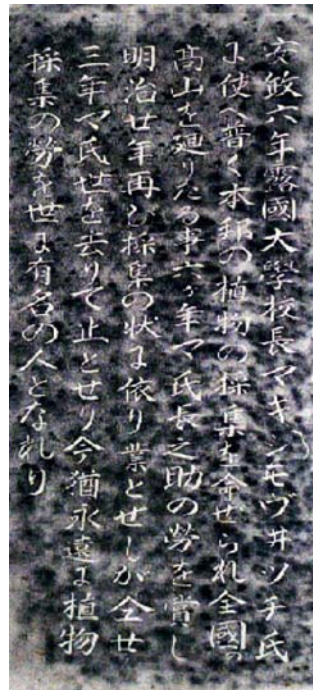 安政六年露國大學校長マキシモヴ井ツチ氏
に使へ普く本邦の植物の採集を命ぜられ全國の
高山を廻りたる事六ヶ年マ氏長之助の勞を賞し
明治廿年再び採集の状に依り業とせしが仝廿
三年マ氏世を去りて止とせり今猶永遠に植物
採集の勞を世に有名の人となれり